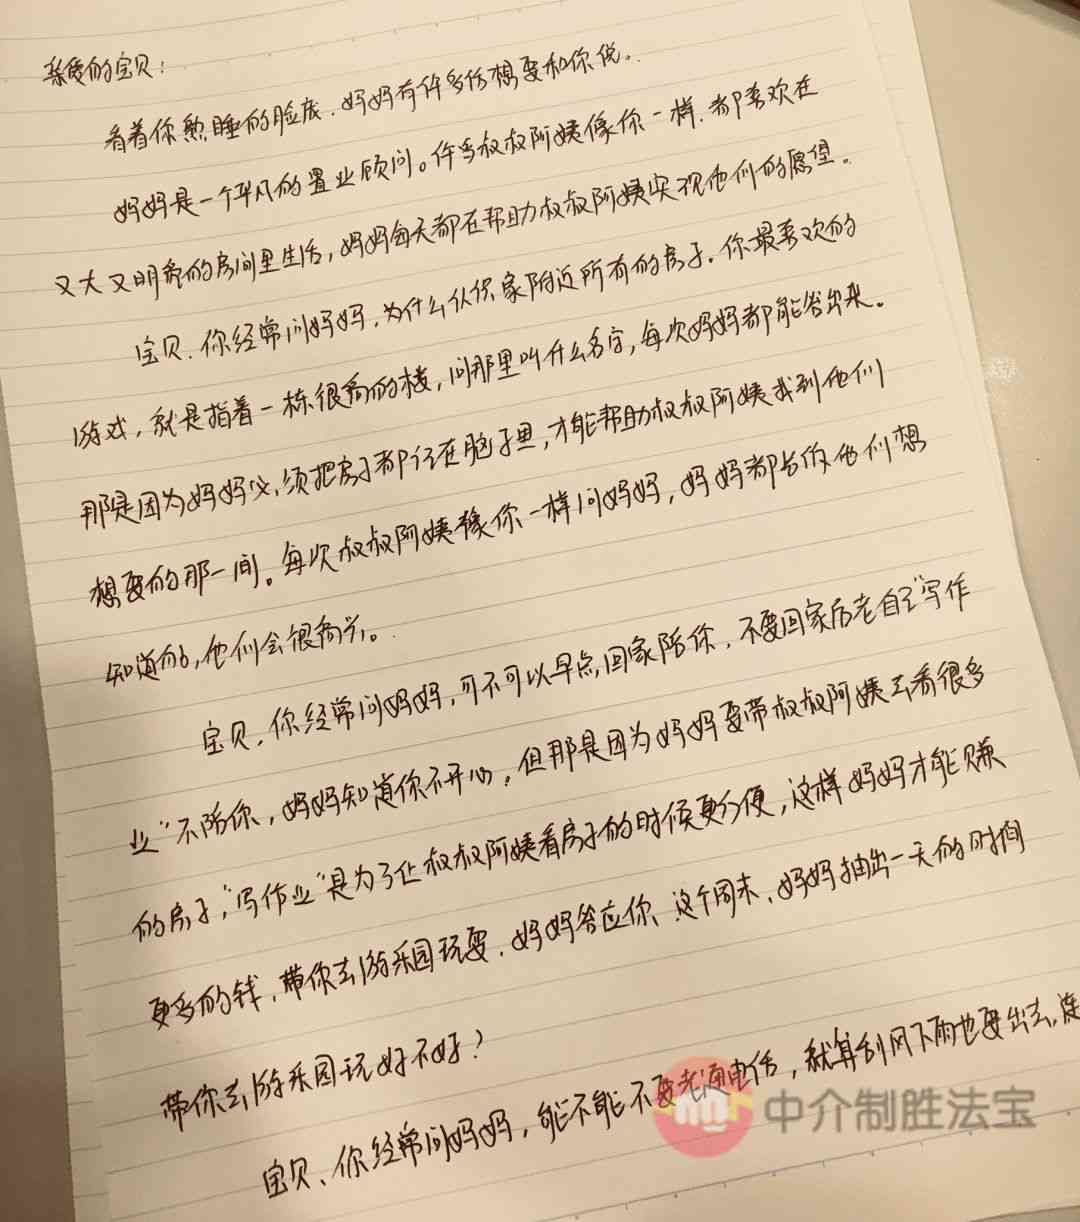 亲爱的宝贝:
看着你熟睡的脸庞、妈妈有许多话想要和你说。
妈妈是一个平凡的置业顾问。许多叔叔阿姨像你一样、都喜欢在
又大又明亮的房间里生活,妈妈每天都在帮助叔叔阿姨实现他们的愿望。
宝贝、你经常问妈妈、为什么认你家附近所有的房子。你最喜欢的
游戏,就是指着一栋很高的楼,问那里叫什么名字,每次妈妈都能答出来。
那是因为妈妈必须把房子都记在脑子里,才能帮助叔叔阿姨找到他们
想要的那一间。每次叔叔阿姨像你一样问妈妈,妈妈都告诉他们想
知道的,他们会很高兴。
宝贝,你经常问妈妈,可不可以早点回家陪你,不要回家后老自己"写作
业"不陪你,妈妈知道你不开心,但那是因为妈妈要带叔叔阿姨去看很多
的房子,"写作业"是为了让叔叔阿姨看房子的时候更方便,这样妈妈才能赚
更多的钱,带你去游乐园玩耍,妈妈答应你、这个周末、妈妈抽出一天的时间
带你去游乐园玩好不好?
宝贝、你经常问妈妈,能不能不要老通电话,就算刮风下雨也要出去,连
中介制胜法宝